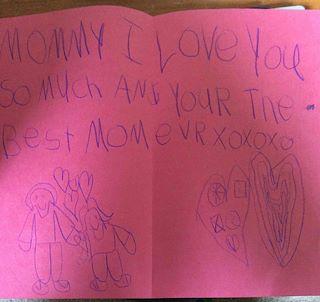 MOMMY I LOVE YOU
SO MUCH AND YOUR THE
BEST MOM eVR XOXOXO